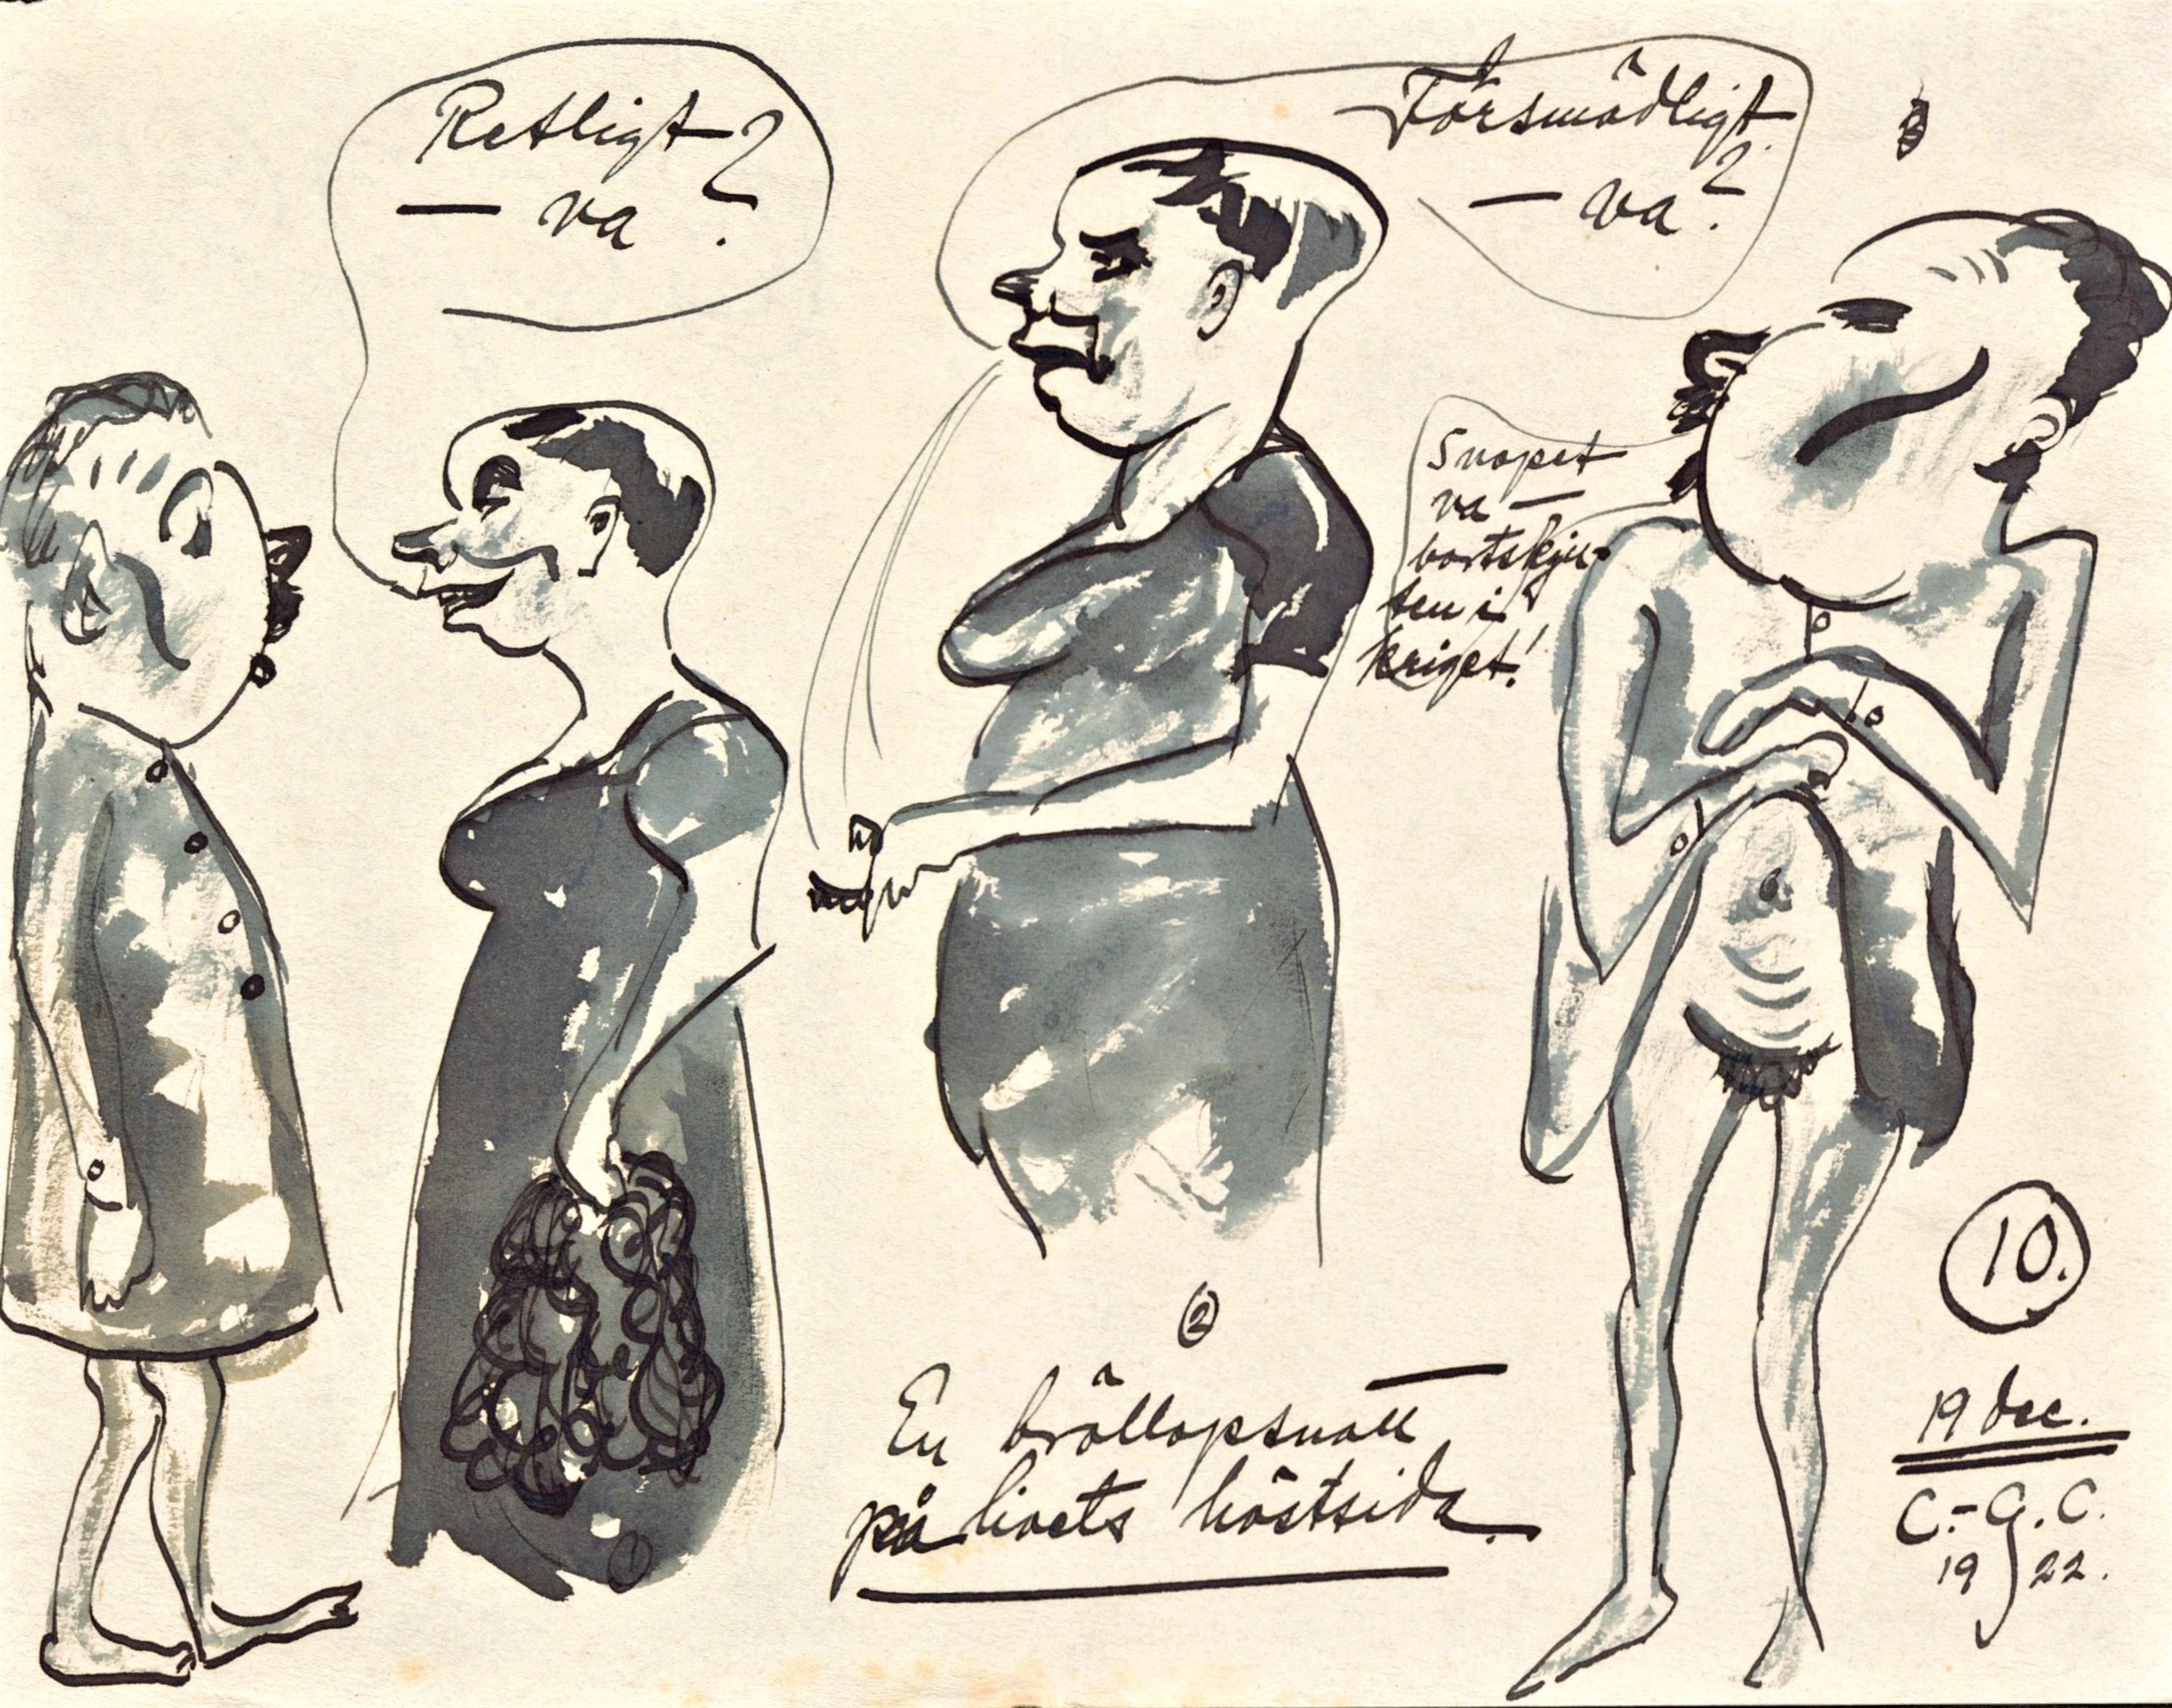 Retligt?
— va?
Försmädligt
— va?
Snopet
va —
bortskju-
ten i
kriget!
3
1
2
En bröllopsnatt
på livets höstsida.
10.
19 dec.
C.-G.C.
1922.